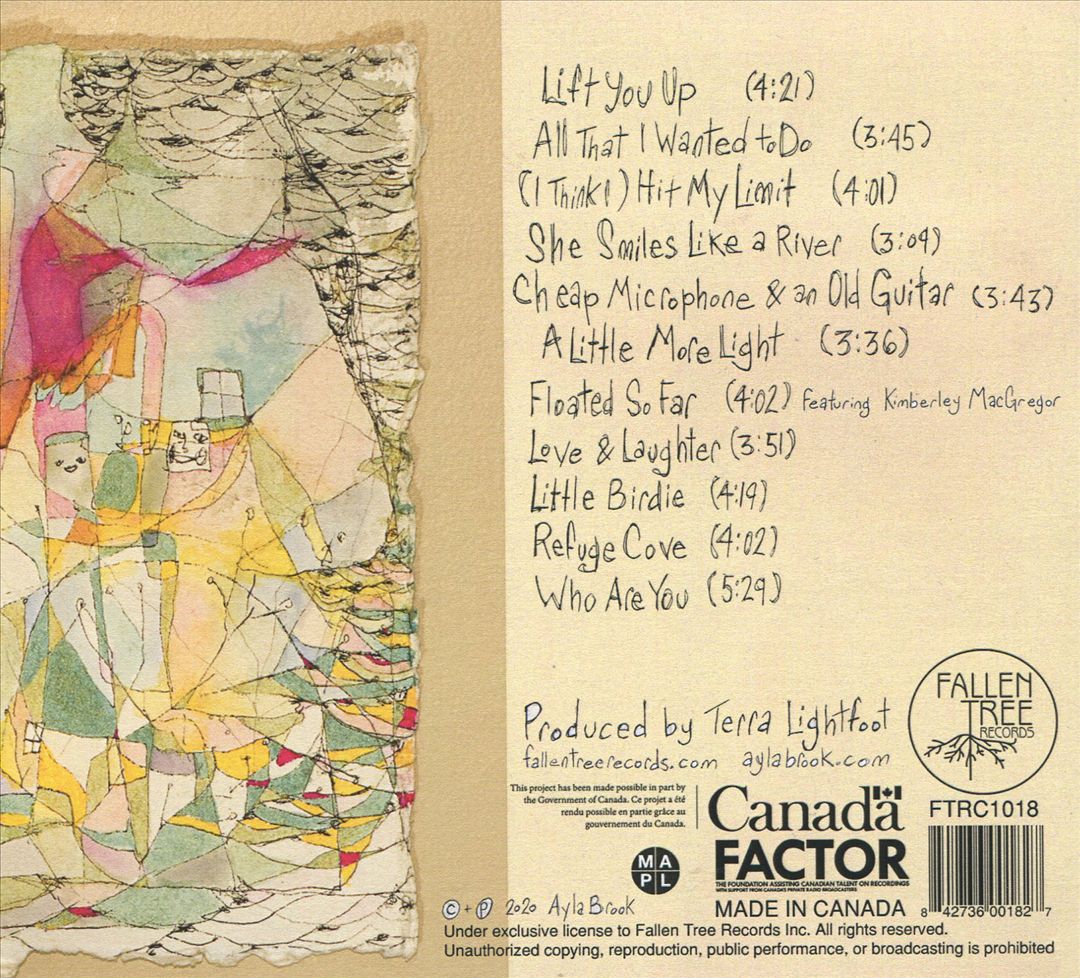 Lift You Up (4:21)
All That I Wanted to Do (3:45)
(I Think I) Hit My Limit (4:01)
She Smiles Like a River (3:09)
Cheap Microphone & an Old Guitar (3:43)
A Little More Light (3:36)
Floated So Far (4:02) Featuring Kimberley MacGregor
Love & Laughter (3:51)
Little Birdie (4:19)
Refuge Cove (4:02)
Who Are You (5:29)
Produced by Terra Lightfoot
fallentreerecords.com aylabrook.com
FALLEN
TREE
RECORDS
This project has been made possible in part by
the Government of Canada. Ce projet a été
rendu possible en partie grâce au
gouvernement du Canada.
Canada
FTRC1018
FACTOR
THE FOUNDATION ASSISTING CANADIAN TALENT ON RECORDINGS
WITH SUPPORT FROM CANADA'S PRIVATE RADIO BROADCASTERS
MA
PL
MADE IN CANADA
8 42736 00182 7
© + ℗ 2020 Ayla Brook
Under exclusive license to Fallen Tree Records Inc. All rights reserved.
Unauthorized copying, reproduction, public performance, or broadcasting is prohibited